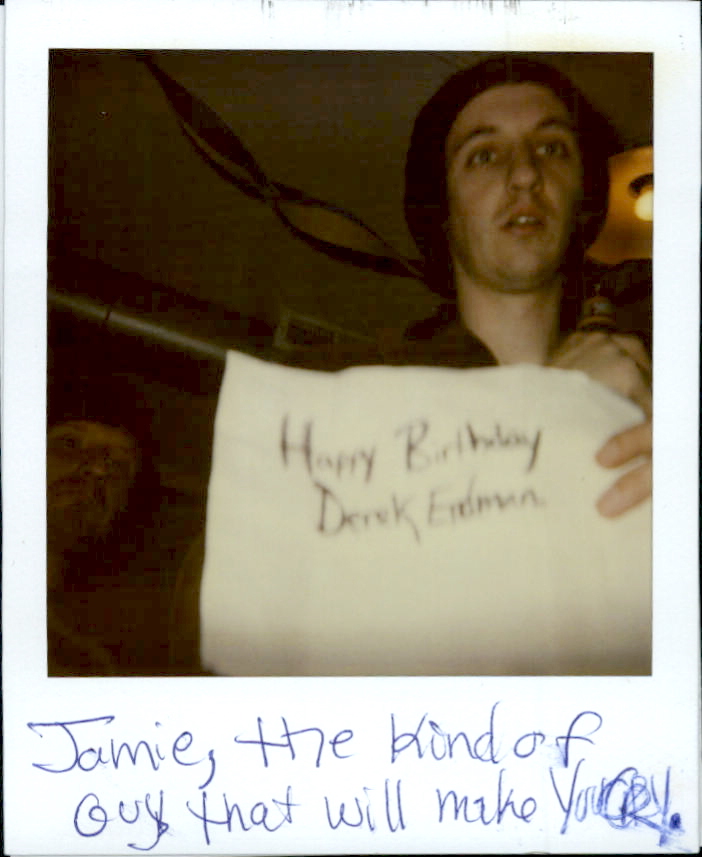 Happy Birthday
Derek Erdman.
Jamie, the kind of
Guy that will make You CRY.